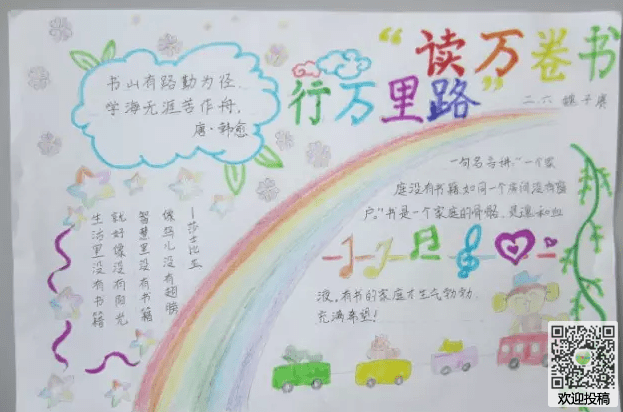 “读万卷书
行万里路”
二.六
书山有路勤为径,
学海无涯苦作舟。
唐·韩愈
一句名言讲:“一个家
庭没有书籍,如同一个房间没有窗
户。”书是一个家庭的骨骼、灵魂和血
液,有书的家庭才生气勃勃、
充满希望!
—莎士比亚
生活里没有书籍
就好像没有阳光
智慧里没有书籍
像鸟儿没有翅膀
欢迎投稿